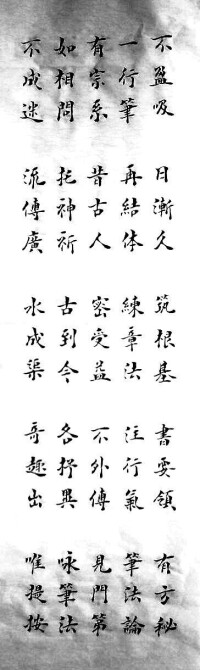 不盈吸 日漸久 筑根基 書要領 有方秘
一行筆 再結体 練章法 注行氣 筆法論
有宗系 昔古人 密受益 不外傳 見門第
如相問 托神祈 古到今 各抒異 咏筆法
不成迷 流傳廣 水成渠 奇趣出 唯提按